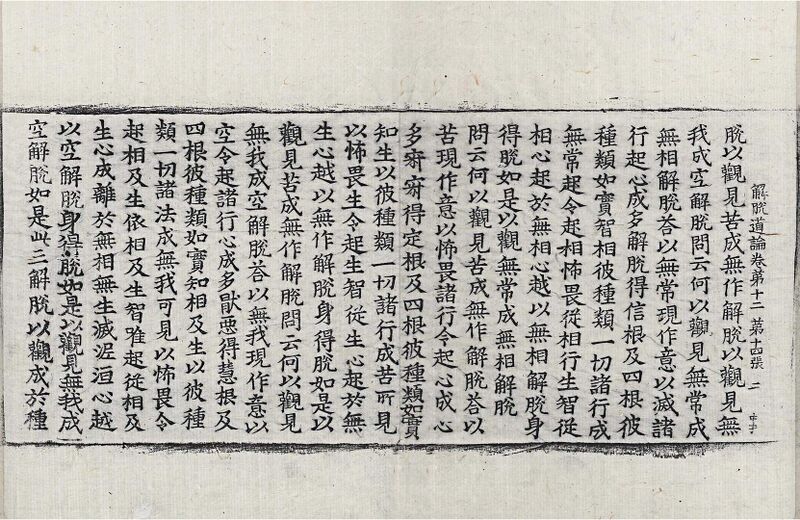 解脫道論卷第十二 第十四張 二
脫以觀見苦成無作解脫以觀見無
我成空解脫問云何以觀見無常成
無相解脫荅以無常現作意以滅諸
行起心成多解脫得信根及四根彼
種類如實智相彼種類一切諸行成
無常起令起相怖畏從相行生智從
相心起於無相心越以無相解脫身
得脫如是以觀無常成無相解脫
問云何以觀見苦成無作解脫荅以
苦現作意以怖畏諸行令起心成心
多寂寂得定根及四根彼種類如實
知生以彼種類一切諸行成苦所見
以怖畏生令起生智從生心起於無
生心越以無作解脫身得脫如是以
觀見苦成無作解脫問云何以觀見
無我成空解脫荅以無我現作意以
空令起諸行心成多猒惡得慧根及
四根彼種類如實知相及生以彼種
類一切諸法成無我可見以怖畏令
起相及生依相及生智唯起從相及
生心成離於無相無生滅泥洹心越
以空解脫身得脫如是以觀見無我成
空解脫如是此三解脫以觀成於種